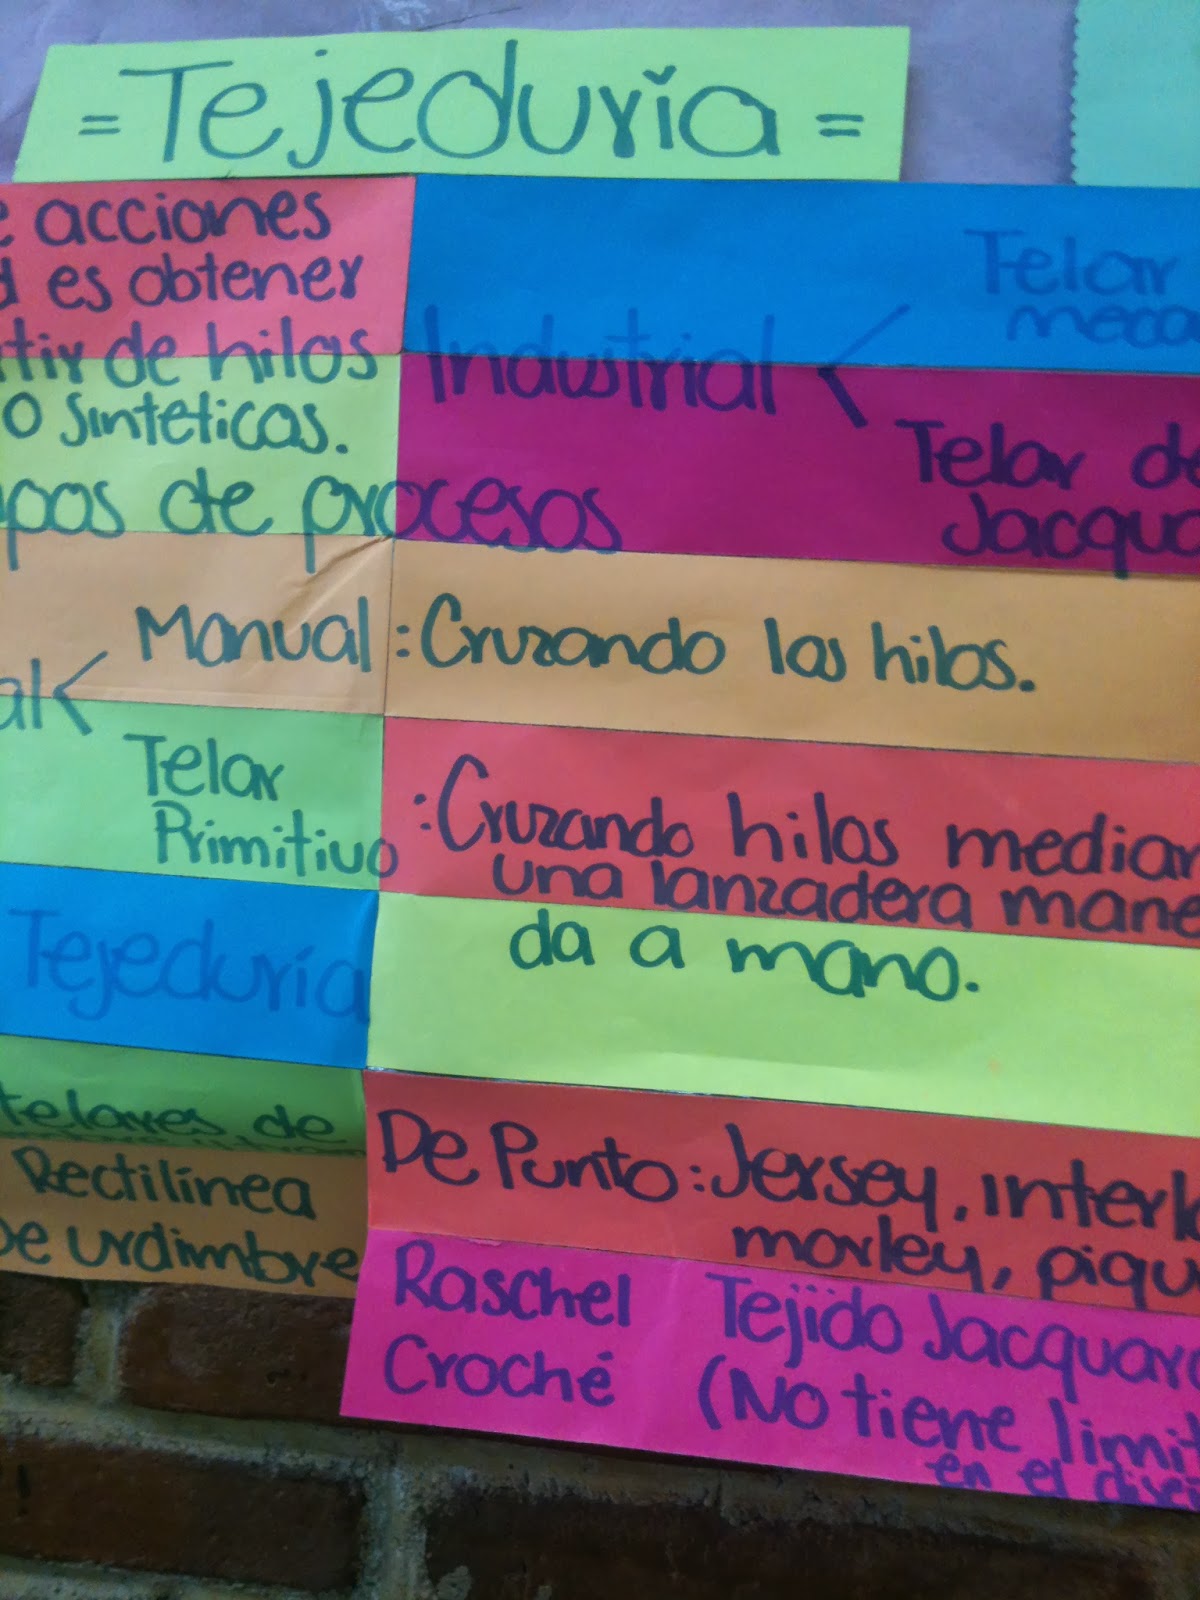 = Tejeduría =
acciones
es obtener
de hilos
o sinteticas.
de procesos
Industrial <
Telar
Telar de
Manual : Cruzando los hilos.
<
Telar
Primitivo
: Cruzando hilos
una lanzadera
da a mano.
Tejeduría
telares de
Rectilínea
De urdimbre
De Punto: Jersey, 
morley,
Raschel
Croché
Tejido Jacquard
(No tiene
en el